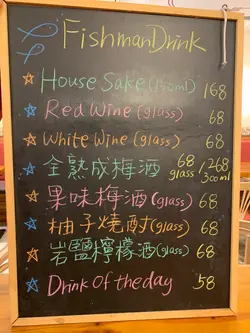 FishmanDrink
House Sake (150ml) 168
Red Wine (glass) 68
White Wine (glass) 68
全熟成梅酒 68 glass / 268 300ml
果味梅酒 (glass) 68
柚子燒酎 (glass) 68
岩鹽檸檬酒 (glass) 68
Drink Of the day 58